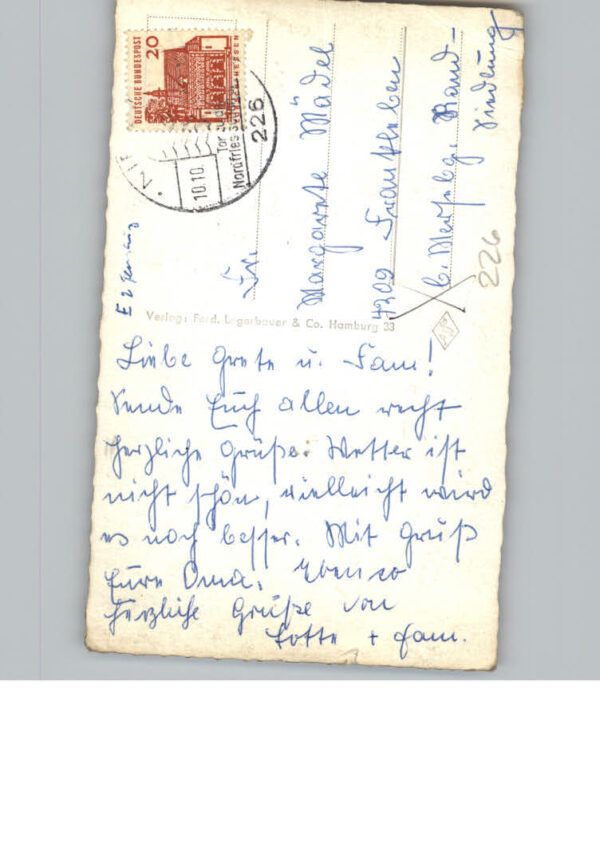 DEUTSCHE BUNDESPOST
20
HESSEN
10.10.
Tor
Nordfries
226
Fr.
Margarete Mädel
4209 Frankleben
b. Mersebg. Rand-
Siedlung
226
Verlag: Ferd. Lagerbauer & Co. Hamburg 33
Liebe Grete u. Fam!
Sende Euch allen recht
herzliche Grüße. Wetter ist
nicht schön, vielleicht wird
es noch besser. Mit Gruß
Eure Oma. Ebenso
herzliche Grüße von
Lotte + Fam.